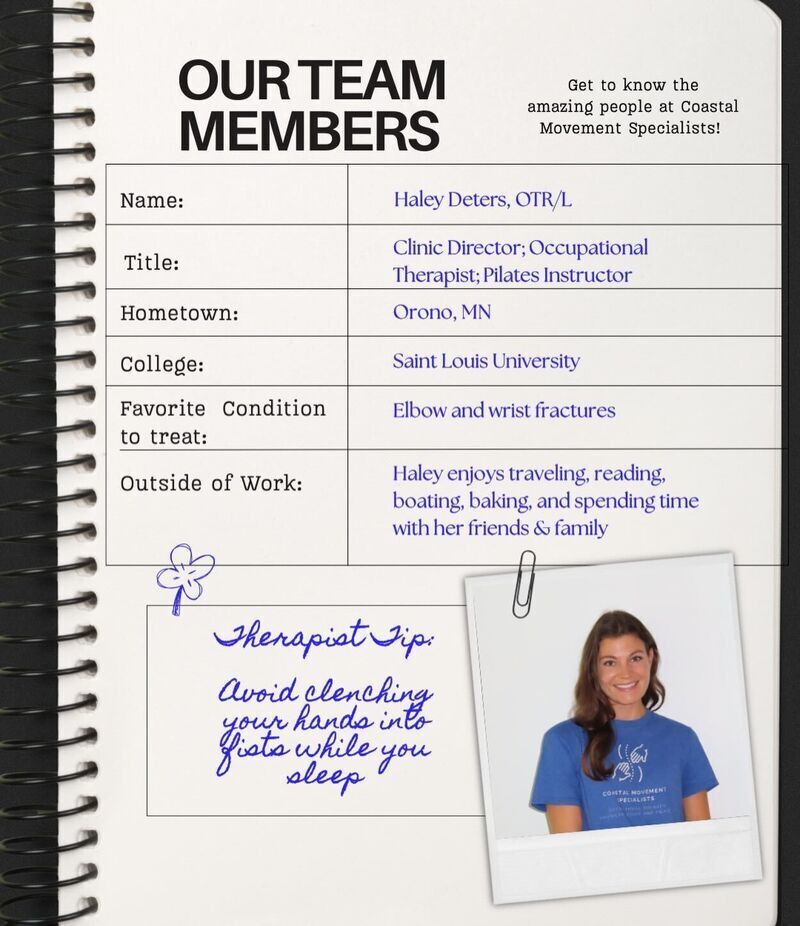 OUR TEAM
MEMBERS
Get to know the
amazing people at Coastal
Movement Specialists!
Name:
Haley Deters, OTR/L
Title:
Clinic Director; Occupational
Therapist; Pilates Instructor
Hometown:
Orono, MN
College:
Saint Louis University
Favorite Condition
to treat:
Elbow and wrist fractures
Outside of Work:
Haley enjoys traveling, reading,
boating, baking, and spending time
with her friends & family
Therapist Tip:
Avoid clenching
your hands into
fists while you
sleep
COASTAL MOVEMENT
SPECIALISTS